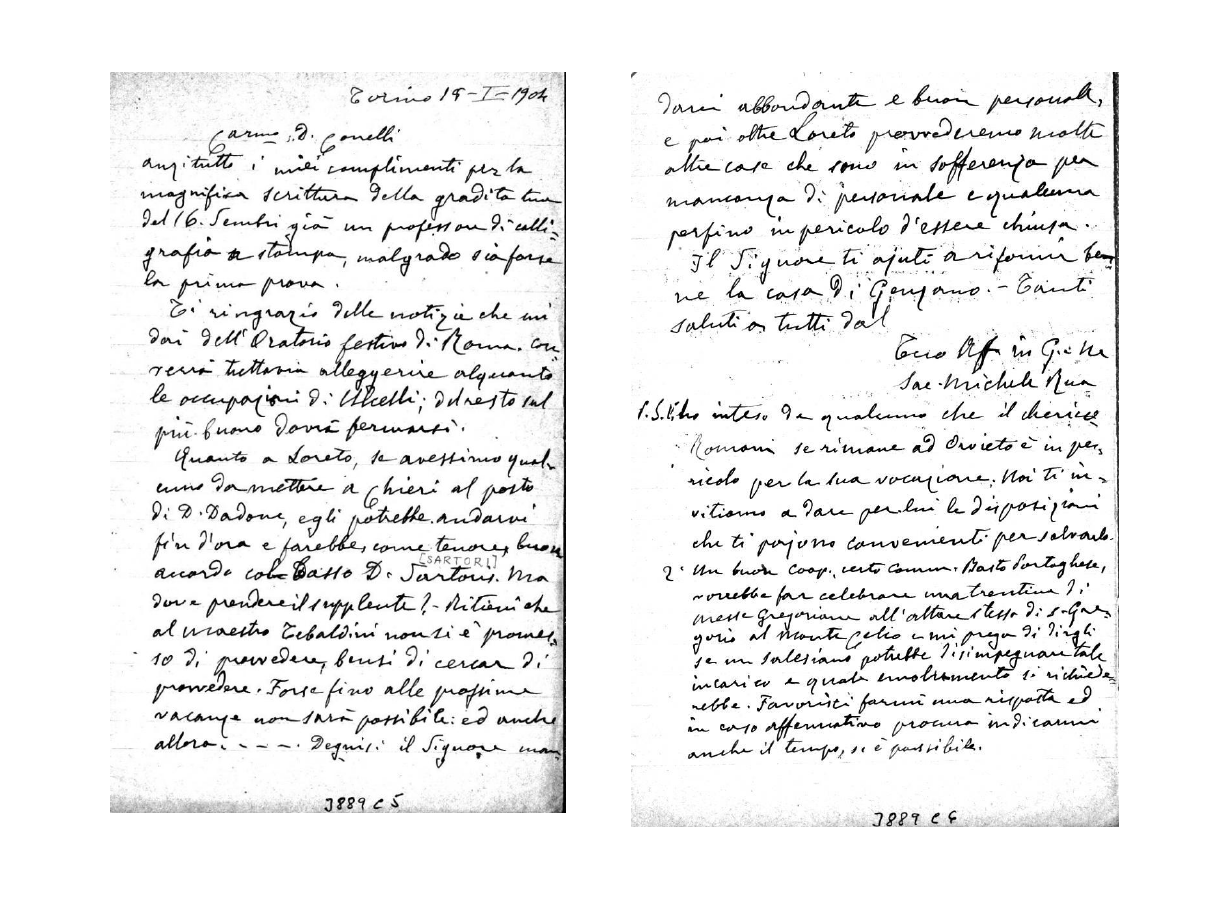 Torino 19-I-1904
Carmo. D. Conelli
anzitutto i miei complimenti per la
magnifica scrittura della gradita tua
del 16. Sembri già un professore di calli-
grafia a stampa, malgrado sia forse
la prima prova.
Ti ringrazio delle notizie che mi
dai dell'Oratorio festivo di Roma. Con
verrà tuttavia alleggerire alquanto
le occupazioni di ; del resto sul
più buono dovrà fermarsi.
Quanto a Loreto, se avessimo qual-
cuno da mettere a Chieri al posto
di D. Dadone, egli potrebbe andarvi
fin d'ora e farebbe, come tenore, buon
[SARTORI]
accordo col basso D. Sartoris. Ma
dove prendere il supplente? - Ritieni che
al maestro Tebaldini non si è promes-
so di provvedere, bensì di cercar di
provvedere. Forse fino alle prossime
vacanze non sarà possibile: ed anche
allora. - - - . Degnisi il Signore man
J889 C 5
darci abbondante e buon personale,
e poi oltre Loreto provvederemo molte
altre case che sono in sofferenza per
mancanza di personale e qualcuna
perfino in pericolo d'essere chiusa.
Il Signore ti ajuti a rifornir be
ne la casa di Genzano. - Tanti
saluti a tutti dal
Tuo Aff. in G. e M
Sac. Michele Rua
P.S. 1. Ho inteso da qualcuno che il chierico
Romani se rimane ad Orvieto è in pe-
ricolo per la sua vocazione. Noi ti in-
vitiamo a dare per lui le disposizioni
che ti pajono convenienti per salvarlo.
2° Un buon Coop., certo Comm. Basto Portoghese,
vorrebbe far celebrare una trentina di
messe Gregoriane all'altare stesso di S. Gre-
gorio al Monte Celio e mi prega di dirgli
se un salesiano potrebbe disimpegnare tale
incarico e quale emolumento si richiede-
rebbe. Favorisci farmi una risposta ed
in caso affermativo procura indicarmi
anche il tempo, se è possibile.
J889 C 6